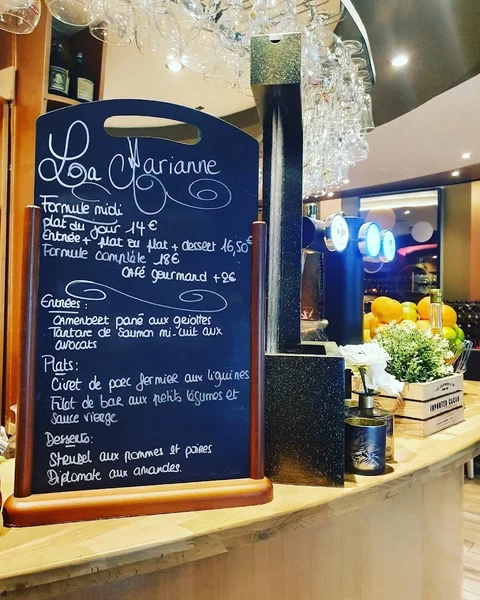 La Marianne
Formule midi
plat du jour 14€
Entrée + plat ou plat + dessert 16,50€
Formule complète 18€
Café gourmand +2€
Entrées :
Camembert pané aux griottes
Tartare de Saumon mi-cuit aux
avocats
Plats :
Civet de porc fermier aux liguines
Filet de bar aux petits légumes et
Sauce vierge
Desserts :
Streusel aux pommes et poires
Diplomate aux amandes.
IMPORTED CACAO